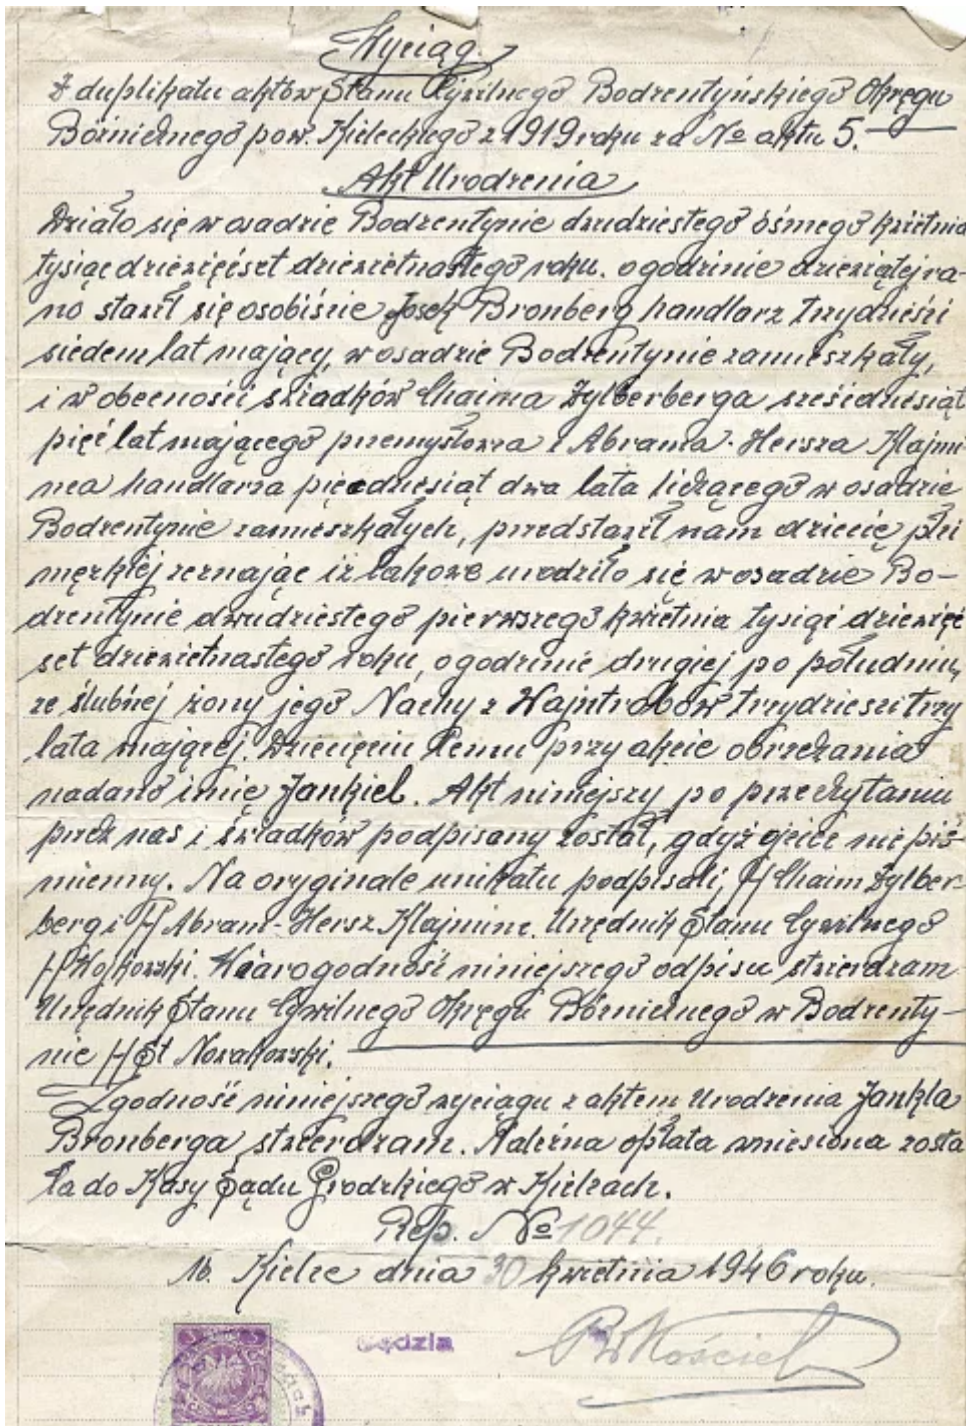 Wyciąg.
Z duplikatu aktów Stanu Cywilnego Bodzentyńskiego Okręgu
Bóżnicznego pow. Kieleckiego z 1919 roku za № aktu 5.
Akt Urodzenia
Działo się w osadzie Bodzentynie dwudziestego ósmego kwietnia
tysiąc dziewięćset dziewietnastego roku. o godzinie dziewiątej ra-
no stawił się osobiście Josek Bronberg handlarz trzydzieści
siedem lat mający, w osadzie Bodzentynie zamieszkały,
i w obecności świadków Chaima Zylberberga sześćdziesiąt
pięć lat mającego przemysłowca i Abrama-Hersza Klajmi-
nca handlarza pięćdziesiąt dwa lata liczącego w osadzie
Bodzentynie zamieszkałych, przedstawił nam dziecię płci
męzkiej zeznając iż takowe urodziło się w osadzie Bo-
dzentynie dwudziestego pierwszego kwietnia tysiąc dziewięć
set dziewietnastego roku, o godzinie drugiej po południu,
ze ślubnej żony jego Nachy z Wajntrobów trzydzieści trzy
lata mającej. Dziecięciu temu przy akcie obrzezania
nadano imię Jankiel. Akt niniejszy po przeczytaniu
przez nas i świadków podpisany został, gdyż ojciec nie piś-
mienny. Na oryginale unikatu podpisali, /-/ Chaim Zylber-
berg i /-/ Abram-Hersz Klajminc. Urzędnik Stanu Cywilnego
/-/ Wojkowski. Wiarogodność niniejszego odpisu stwierdzam
Urzędnik Stanu Cywilnego Okręgu Bóżnicznego w Bodzenty-
nie /-/ St Nowakowski.
Zgodność niniejszego wyciągu z aktem urodzenia Jankla
Bronberga stwierdzam. Należna opłata wniesiona zosta
ła do Kasy Sądu Grodzkiego w Kielcach.
Rep. № 1044.
M. Kielce dnia 30 kwietnia 1946 roku.
Sędzia